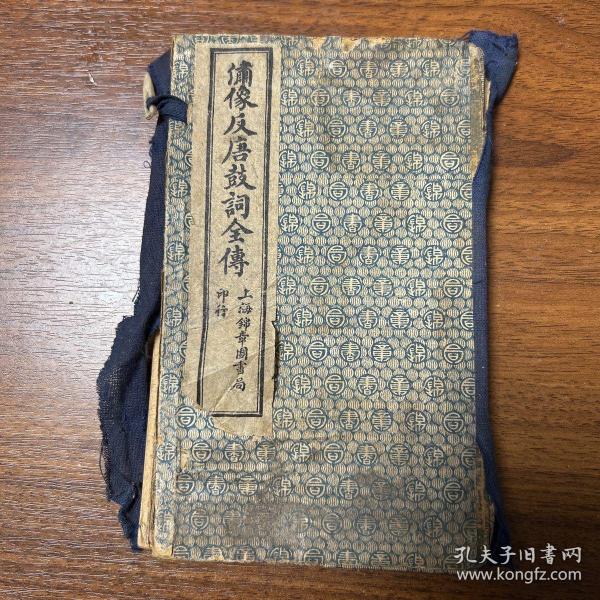 備像反唐鼓詞全傳
上海錦章圖書局
印行
孔夫子旧书网
www.kongfz.com